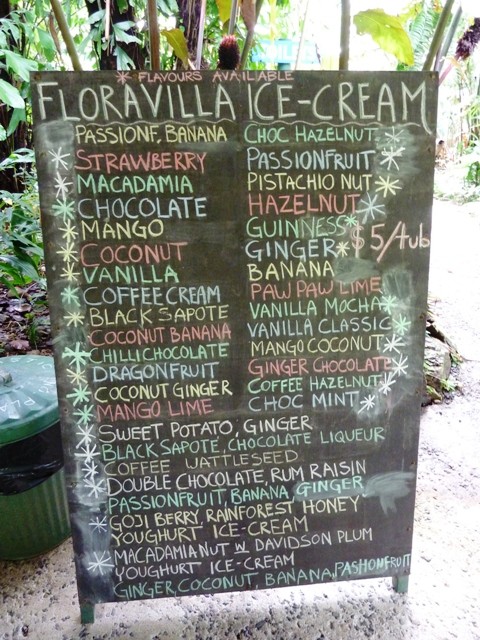 * FLAVOURS AVAILABLE
FLORAVILLA ICE-CREAM
PASSIONF, BANANA
STRAWBERRY
MACADAMIA
CHOCOLATE
MANGO
COCONUT
VANILLA
COFFEE CREAM
BLACK SAPOTE
COCONUT BANANA
CHILLI CHOCOLATE
DRAGONFRUIT
COCONUT GINGER
MANGO LIME
CHOC HAZELNUT
PASSIONFRUIT
PISTACHIO NUT
HAZELNUT
GUINNESS
GINGER
$5/tub
BANANA
PAW PAW LIME
VANILLA MOCHA
VANILLA CLASSIC
MANGO COCONUT
GINGER CHOCOLATE
COFFEE HAZELNUT
CHOC MINT
SWEET POTATO, GINGER
BLACK SAPOTE, CHOCOLATE LIQUEUR
COFFEE WATTLESEED
DOUBLE CHOCOLATE, RUM RAISIN
PASSIONFRUIT, BANANA, GINGER
GOJI BERRY, RAINFOREST HONEY
YOUGHURT ICE-CREAM
MACADAMIANUT W DAVIDSON PLUM
YOUGHURT ICE-CREAM
GINGER, COCONUT, BANANA, PASHONFRUIT